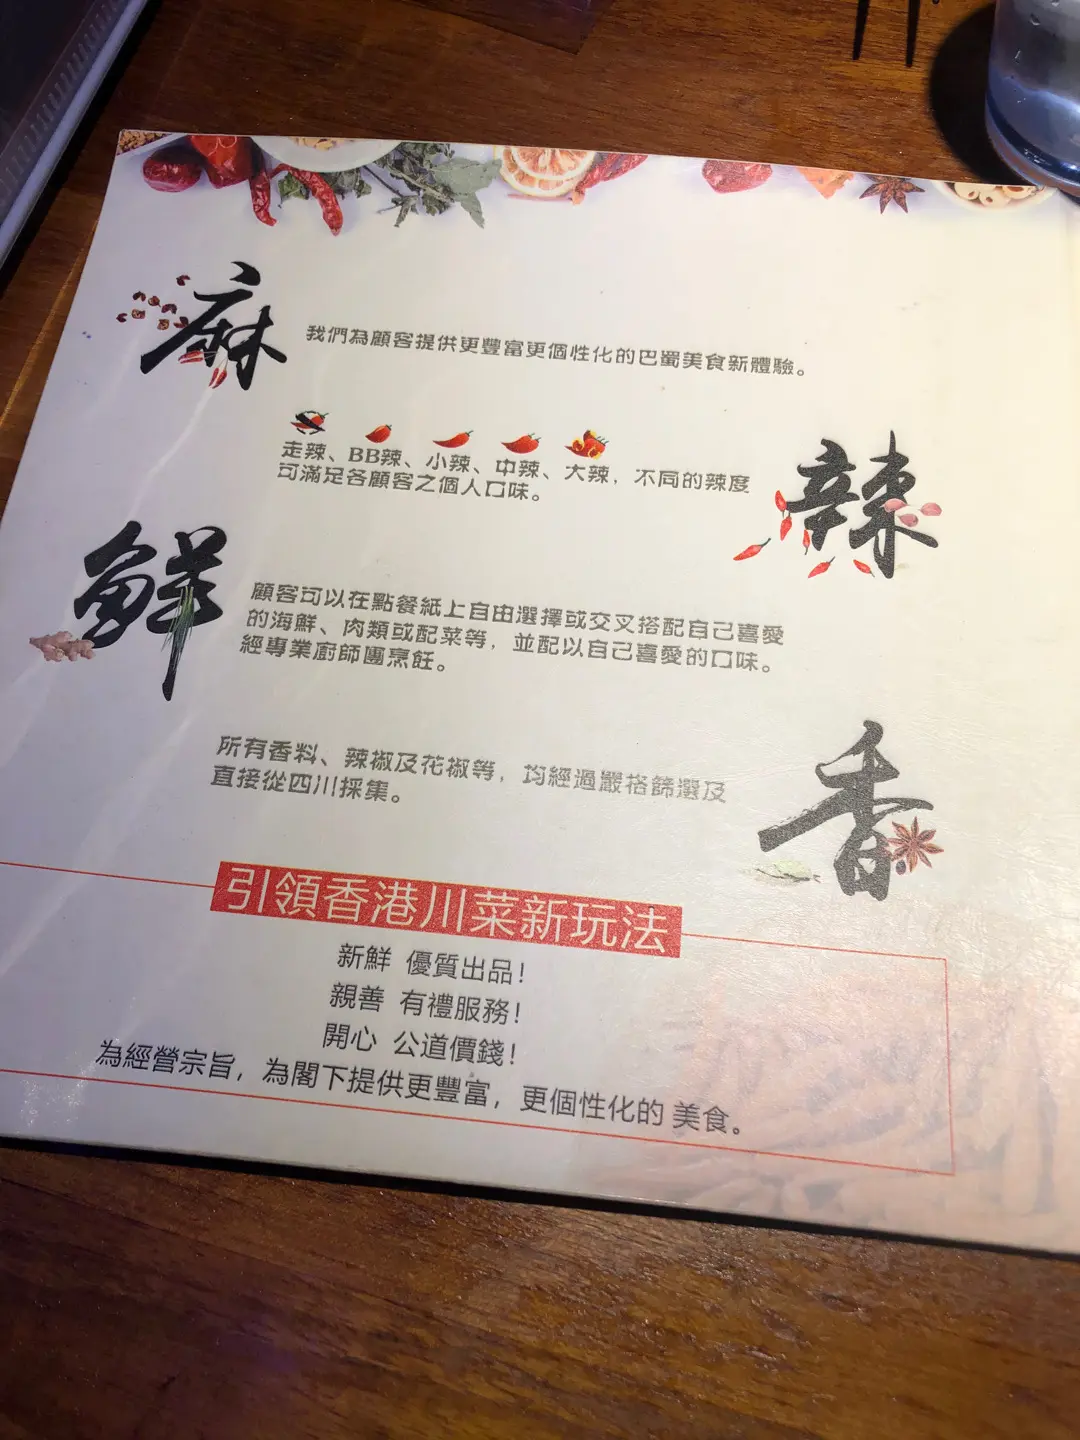 麻
我們為顧客提供更豐富更個性化的巴蜀美食新體驗。
辣
走辣、BB辣、小辣、中辣、大辣，不同的辣度
可滿足各顧客之個人口味。
鮮
顧客可以在點餐紙上自由選擇或交叉搭配自己喜愛
的海鮮、肉類或配菜等，並配以自己喜愛的口味。
經專業廚師團烹飪。
香
所有香料、辣椒及花椒等，均經過嚴格篩選及
直接從四川採集。
引領香港川菜新玩法
新鮮 優質出品！
親善 有禮服務！
開心 公道價錢！
為經營宗旨，為閣下提供更豐富，更個性化的 美食。